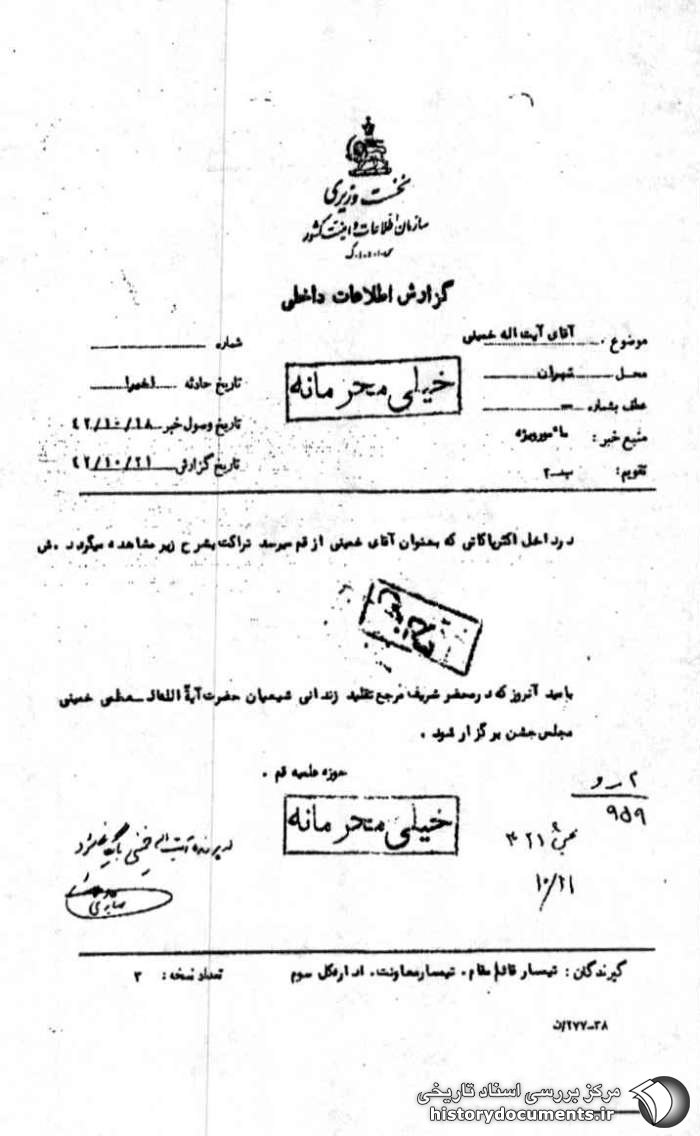 نخست وزیری
سازمان اطلاعات و امنیت کشور
س.ا.ا.ک
گزارش اطلاعات داخلی
موضوع آقای آیت اله خمینی
محل تهران
عطف بشماره —
منبع خبر: مامور ویژه
تقویم: ب-۲
شماره
تاریخ حادثه اخیرا
تاریخ وصول خبر ۴۲/۱۰/۱۸
تاریخ گزارش ۴۲/۱۰/۲۱
خیلی محرمانه
در داخل اکثر پاکاتی که بعنوان آقای خمینی از قم میرسد تراکت بشرح زیر مشاهده میگردد. ش
بامید آنروز که در محضر شریف مرجع تقلید زندانی شیعیان حضرت آیة الله العظمی خمینی
مجلس جشن برگزار شود.
حوزه علمیه قم.
خیلی محرمانه
۹۵۹
۲۱
۱۰/۲۱
در پرونده آیت اله خمینی بایگانی شود
صابری
گیرندگان: تیمسار قائم مقام. تیمسار معاونت. اداره کل سوم
تعداد نسخه: ۳
۳۸-۲۷۷/ن
مرکز بررسی اسناد تاریخی
historydocuments.ir